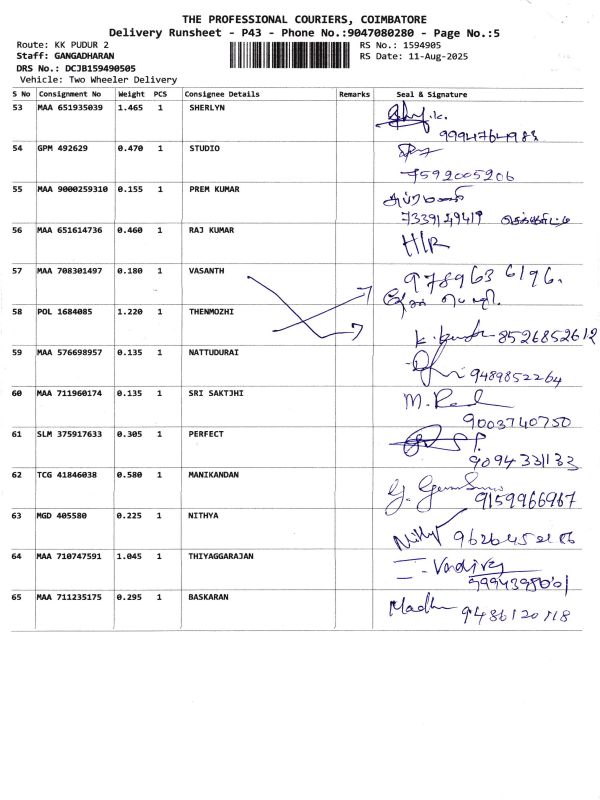 THE PROFESSIONAL COURIERS, COIMBATORE
Delivery Runsheet - P43 - Phone No.:9047080280 - Page No.:5
Route: KK PUDUR 2 RS No.: 1594905
Staff: GANGADHARAN RS Date: 11-Aug-2025
DRS No.: DCJB159490505
Vehicle: Two Wheeler Delivery
S No Consignment No Weight PCS Consignee Details Remarks Seal & Signature
53 MAA 651935039 1.465 1 SHERLYN
9994764983
54 GPM 492629 0.470 1 STUDIO
7592005206
55 MAA 9000259310 0.155 1 PREM KUMAR
56 MAA 651614736 0.460 1 RAJ KUMAR H/R
57 MAA 708301497 0.180 1 VASANTH 9789636196.
58 POL 1684085 1.220 1 THENMOZHI
8526852612
59 MAA 576698957 0.135 1 NATTUDURAI
9489852264
60 MAA 711960174 0.135 1 SRI SAKTJHI
9003740750
61 SLM 375917633 0.305 1 PERFECT
9094331133
62 TCG 41846038 0.580 1 MANIKANDAN
9159966967
63 MGD 405580 0.225 1 NITHYA
64 MAA 710747591 1.045 1 THIYAGGARAJAN
65 MAA 711235175 0.295 1 BASKARAN
Madhu